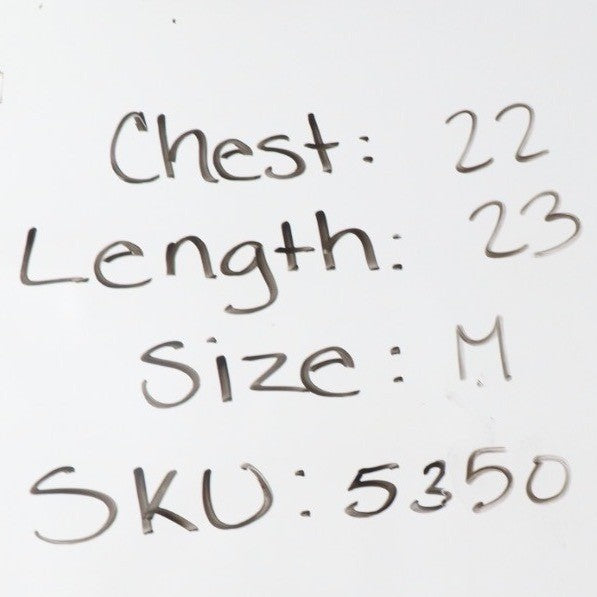 Chest: 22
Length: 23
Size: M
SKU: 5350